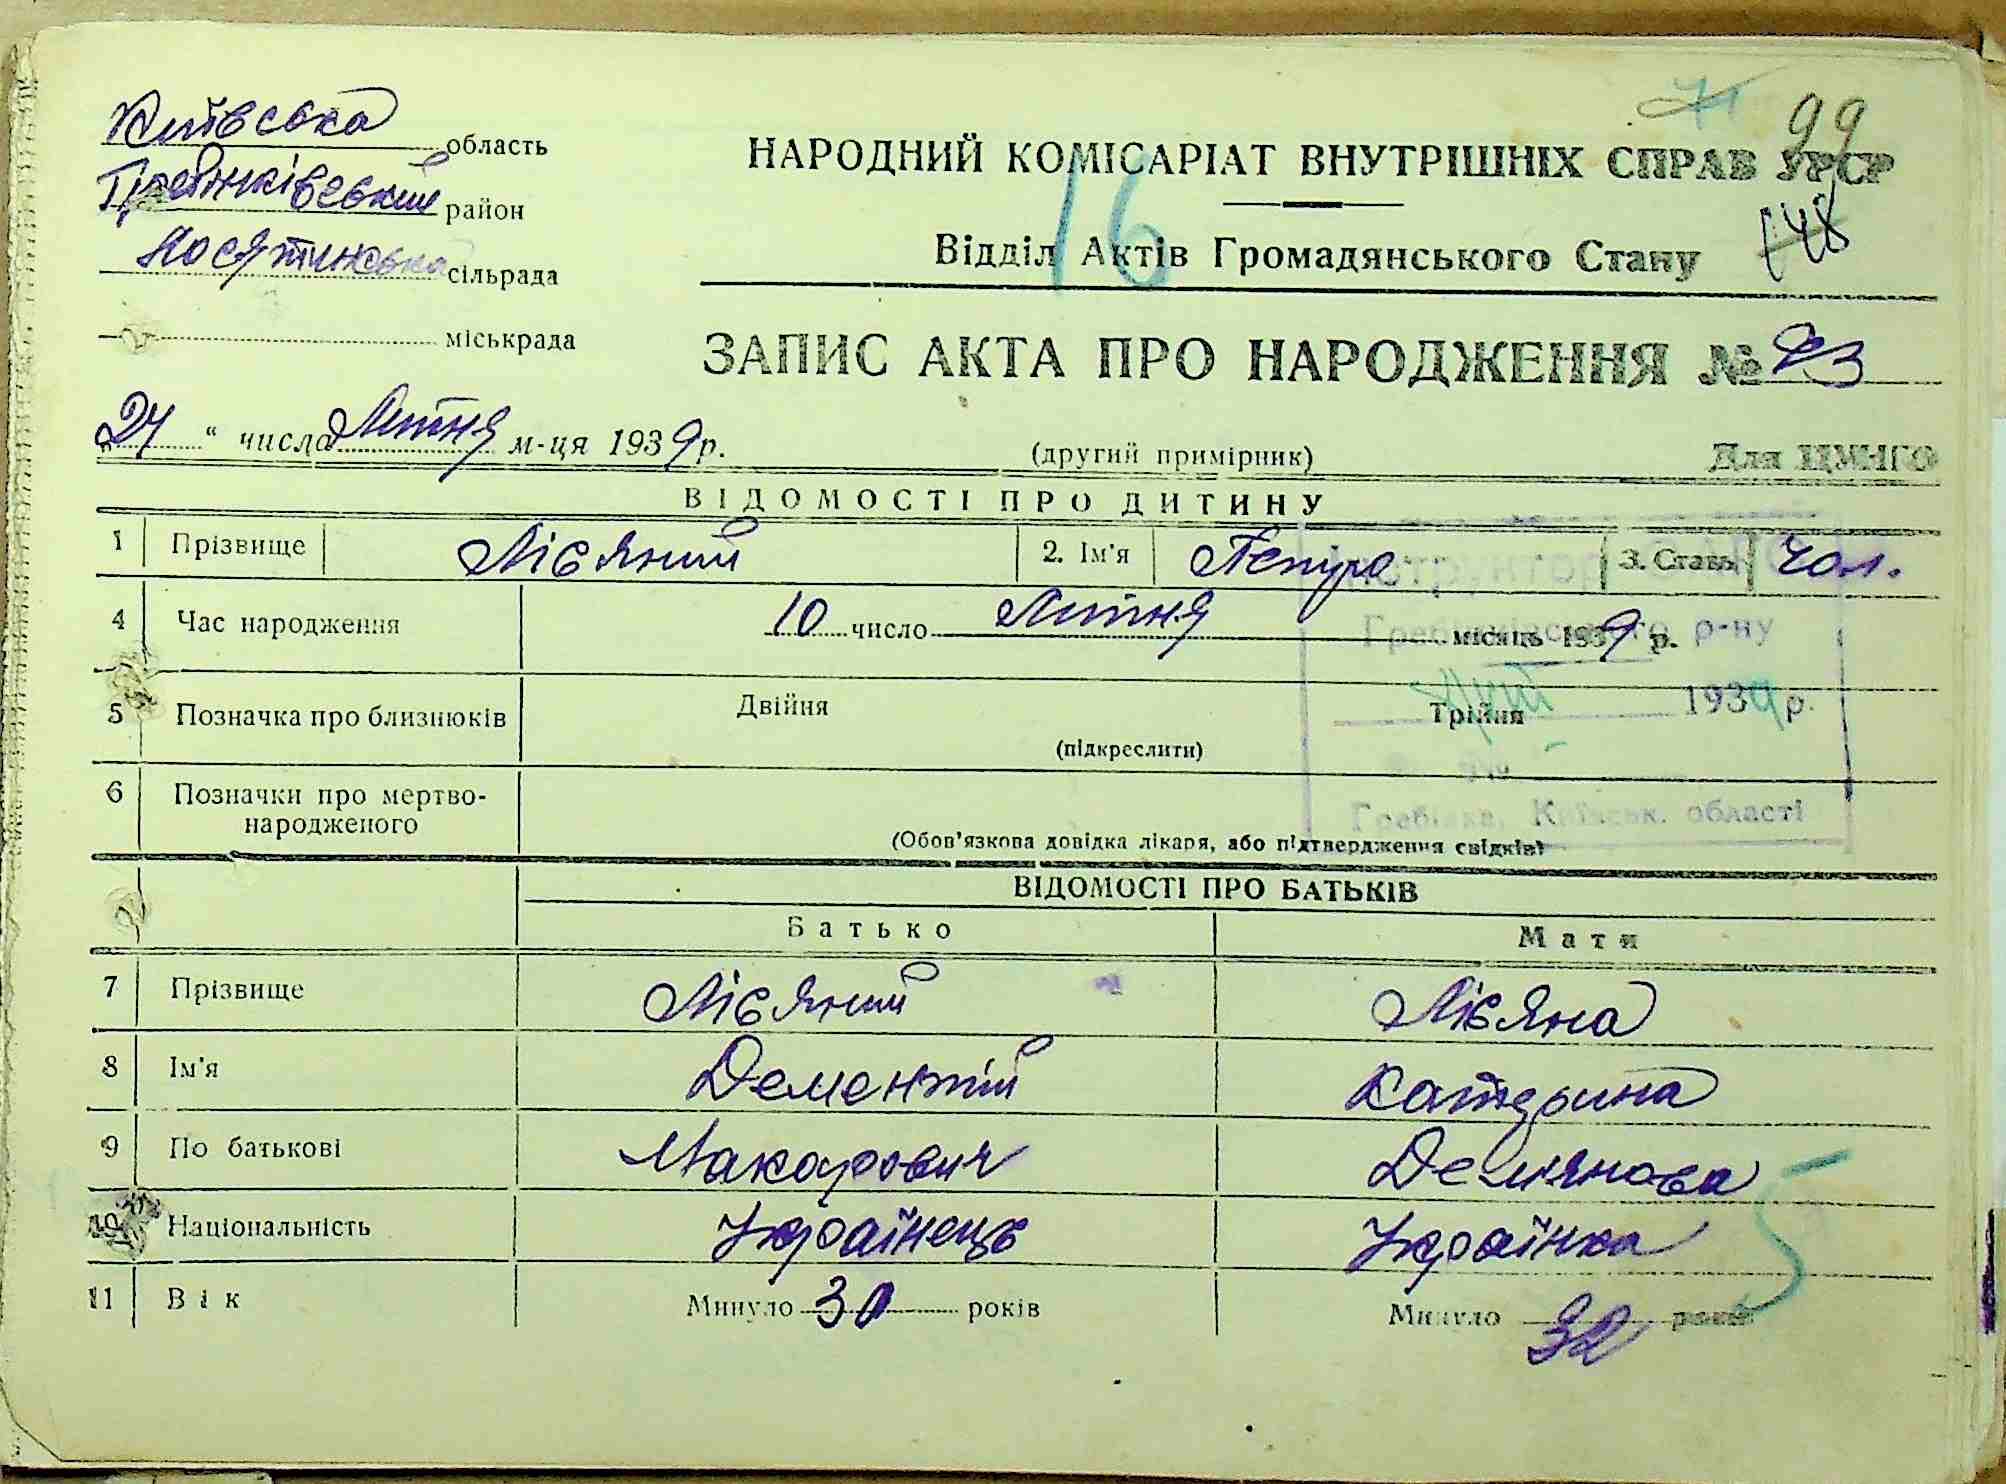 Київська область
Гребінківський район
сільрада
міськрада
99
НАРОДНИЙ КОМІСАРІАТ ВНУТРІШНІХ СПРАВ УРСР
16
148
Відділ Актів Громадянського Стану
ЗАПИС АКТА ПРО НАРОДЖЕННЯ № 23
„24“ числа Лютня м-ця 1939 р.
(другий примірник)
Для ЦУНГО
ВІДОМОСТІ ПРО ДИТИНУ
1 Прізвище Лісяний 2. Ім'я Петро 3. Стать Чол.
4 Час народження 10 число Лютня місяць 1939 р.
5 Позначка про близнюків Двійня Трійня
(підкреслити)
6 Позначки про мертво-
народженого
(Обов'язкова довідка лікаря, або підтвердження свідків)
Гребінківського р-ну
1939 р.
Гребінка, Київськ. області
ВІДОМОСТІ ПРО БАТЬКІВ
Батько Мати
7 Прізвище Лісяний Лісяна
8 Ім'я Дементій Катерина
9 По батькові Макарович Демянова
10 Національність Українець Українка
5
11 Вік Минуло 30 років Минуло 32 років